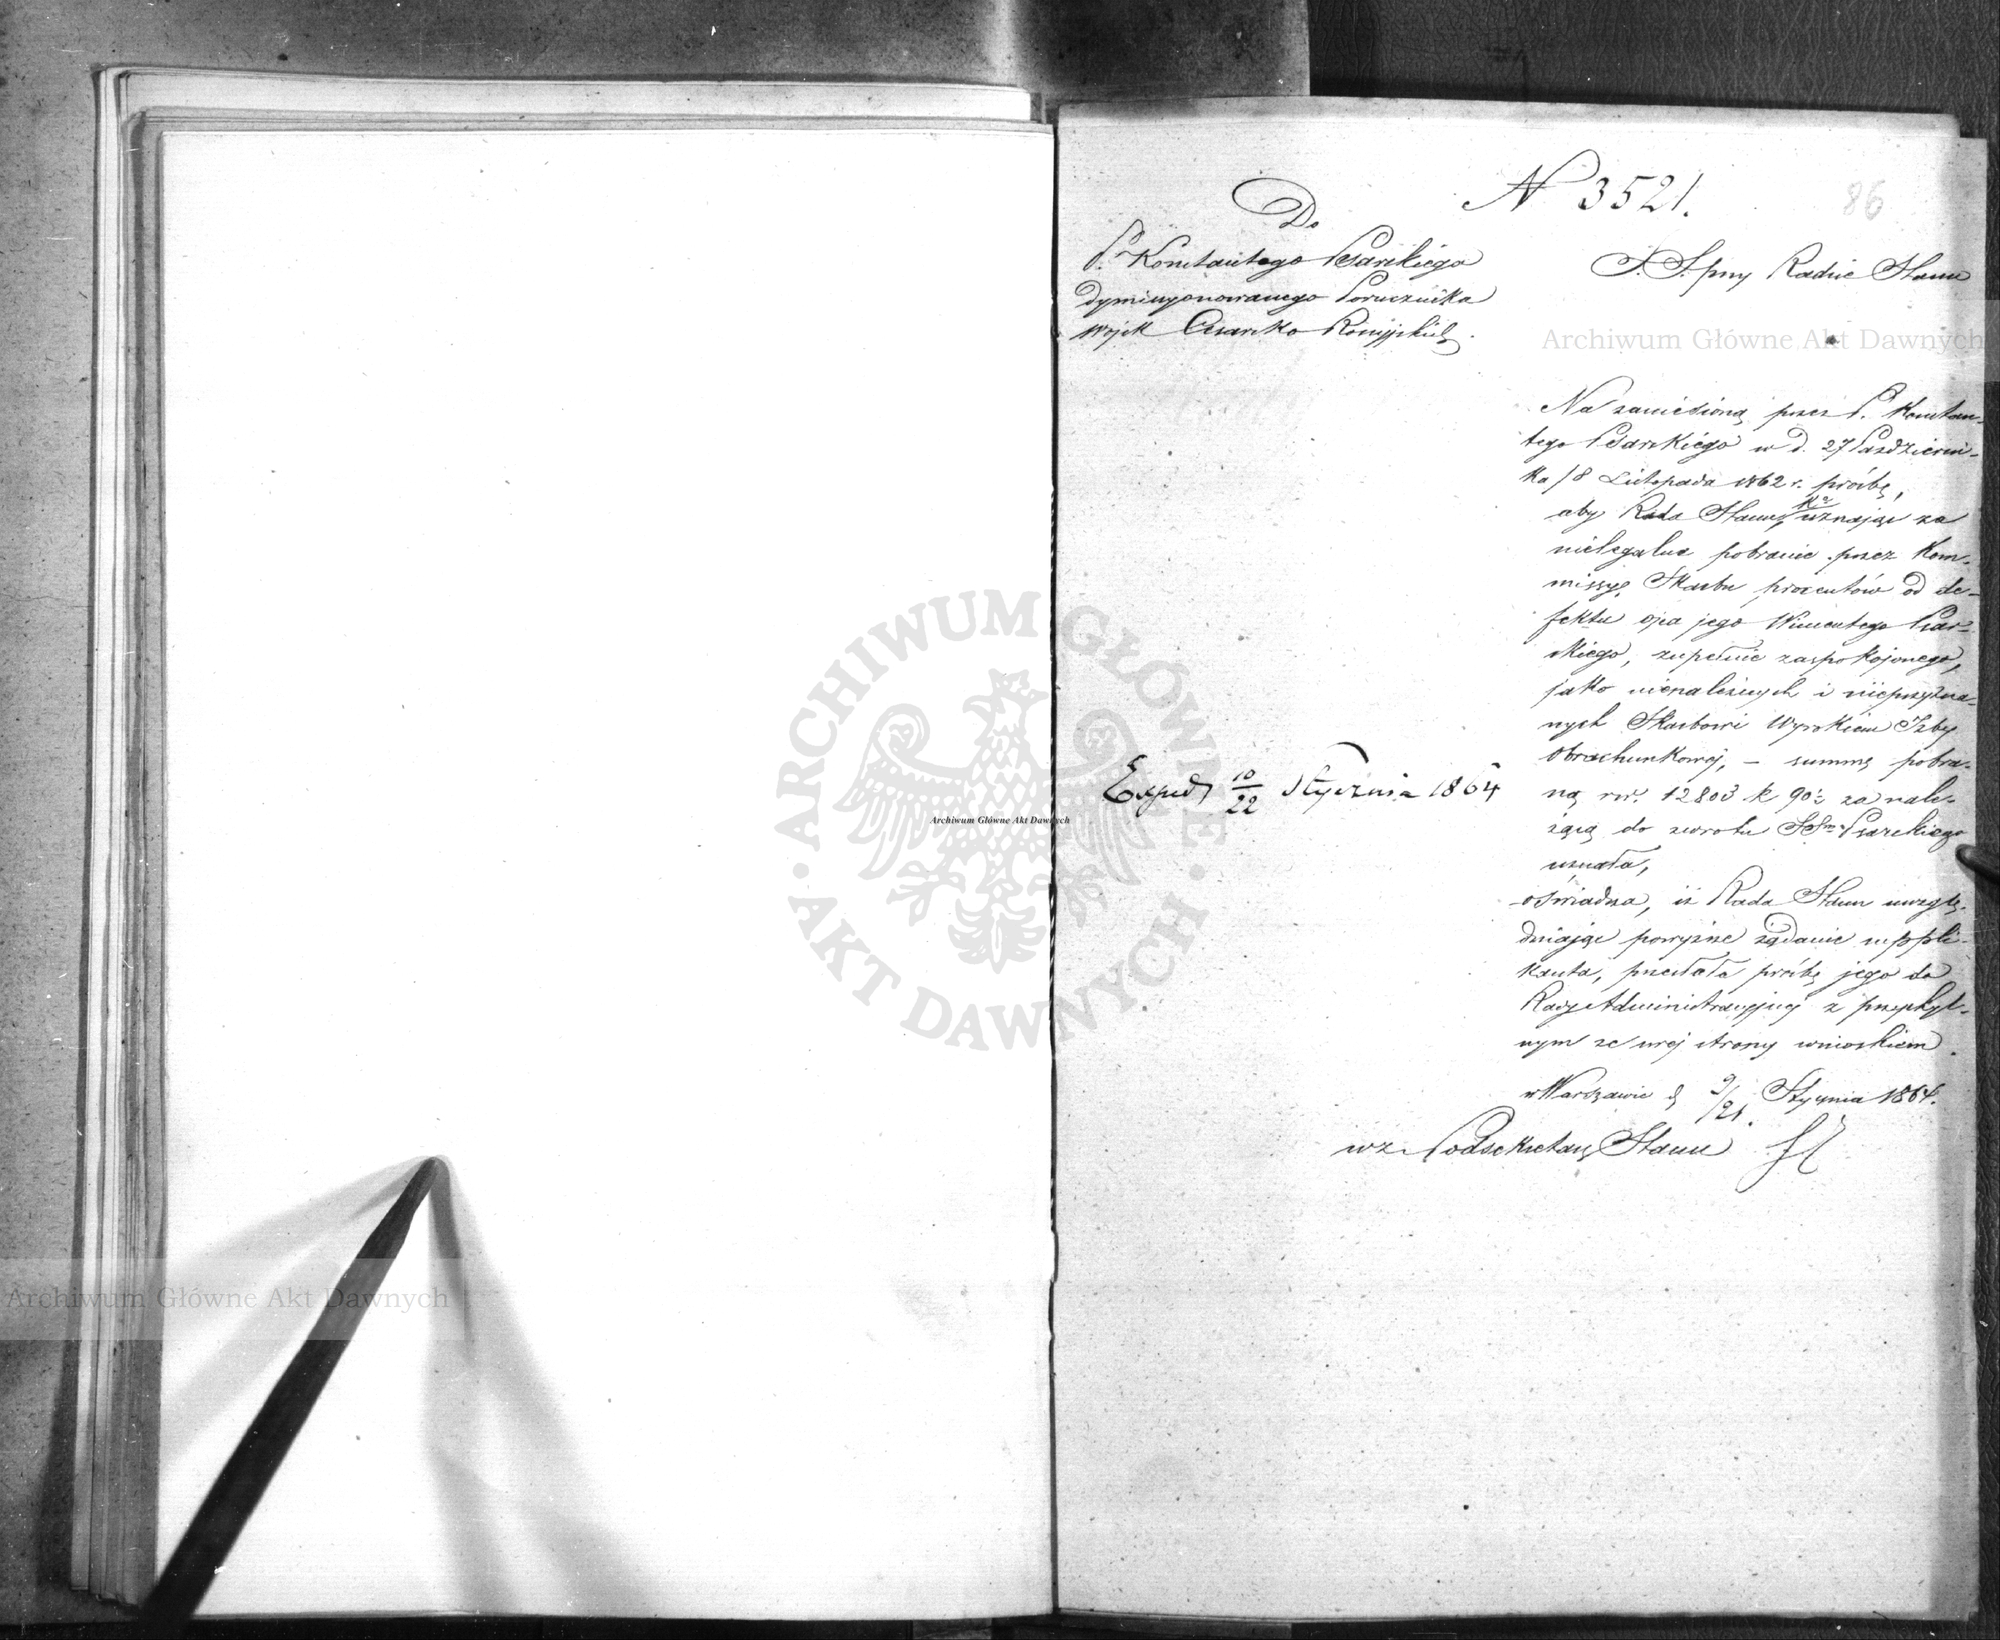 N 3521.
86
Do
P. Konstantego Psarskiego
dymisyonowanego Porucznika
Wojsk Cesarsko Rossyjskich.
S. S. przy Radzie Stanu
Archiwum Główne Akt Dawnych
Na zaniesioną przez P. Konstan-
tego Psarskiego w d. 27 Październi-
ka/8 Listopada 1862 r. prośbę,
aby Rada Stanu, uznając za
nielegalne pobranie przez Kom-
missyę Skarbu procentów od de-
fektu ojca jego Wincentego Psar-
skiego, zupełnie zaspokojonego,
jako nienależnych i nieprzyzna-
nych Skarbowi Wyrokiem Izby
Obrachunkowej, – summę pobra-
ną rsr. 12803 k 90½ za nale-
żącą do zwrotu SSrom Psarskiego
uznała,
oświadcza, iż Rada Stanu uwzglę-
dniając powyższe żądanie suppli-
kanta, przesłała prośbę jego do
Rady Administracyjnej z przychyl-
nym ze swej strony wnioskiem.
w Warszawie d 9/21 Stycznia 1864.
wz. Podsekretarz Stanu
Exped 10/22 Stycznia 1864
ARCHIWUM GŁÓWNE AKT DAWNYCH
Archiwum Główne Akt Dawnych
Archiwum Główne Akt Dawnych